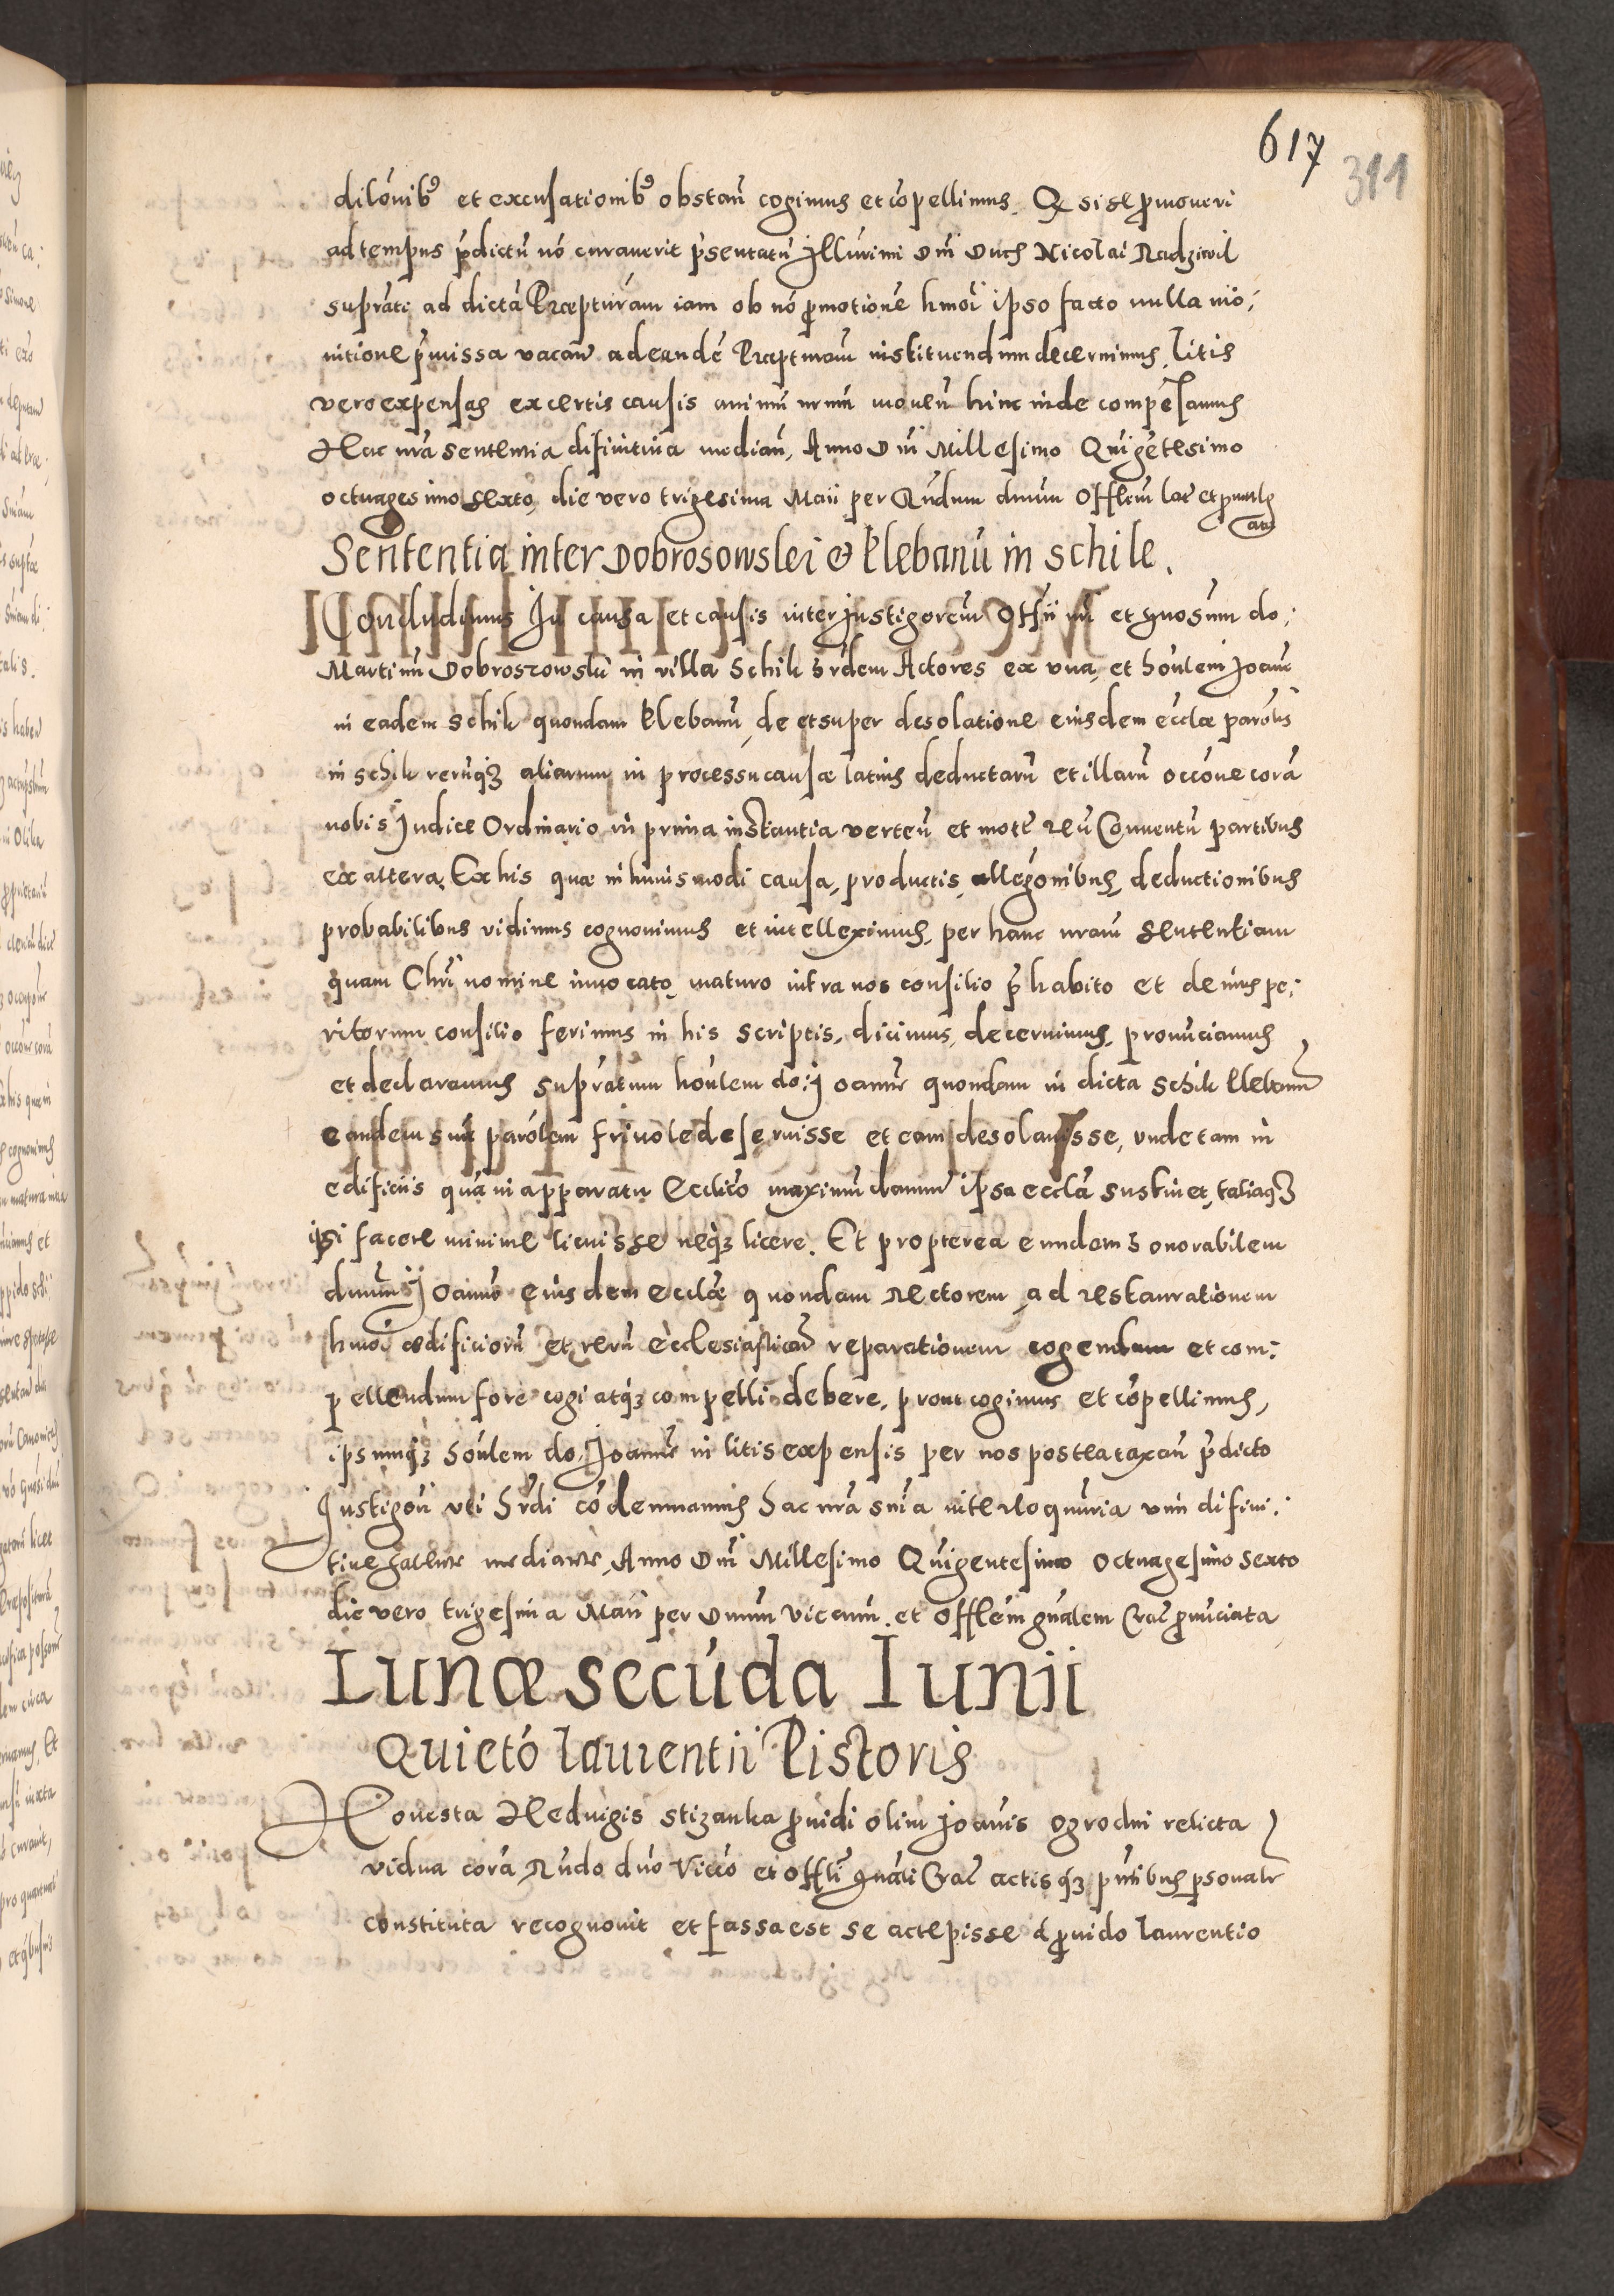 617
311
dilónib9 et excusationib9 obstań cogimus et cōpellimus. Q si se promoveri
ad tempus p̄dictū nō curaverit p̄sentatū Illurimi Dni Ducis Nicolai Radziwil
suprāti ad dictā Præpturam iam ob nō promotionē hmōi ipso facto nulla mo;
nitione p̄missa vacań ad eandē Præpturam instituendum decernimus. Litis
vero expensas ex certis causis animū nrum moveń hinc inde compēsamus
Hac nrā sententia difinitiva mediań, Anno Dni Millesimo Quīgetesimo
octuagesimo sexto, die vero trigesima Maii per Rńdum dnum Offlem lat et promulg
atæ
Sententia inter Dobrosowslei & Klebanū in schile.
Concludimus In causa et causis inter Instigorem Offii nri et gnosum do:
Martinū Dobroszowski in villa Schik hrdem Actores ex una, et hońlem Joanē
in eadem schik quondam Klebanū, de et super desolatione eiusdem ecclæ parōlis
in schik rerūq3 aliarum in processu causæ latius deductarū et illarū occōne corā
nobis Judice Ordinario in prima instantia verteń et motē Reū Conventū partibus
ex altera. Ex his quæ in huiusmodi causa, productis, allegōnibus, deductionibus
probabilibus vidimus cognovimus et intelleximus, per hanc nram sententiam
quam Chri nomine invocato, maturo intra nos consilio p̄habito et de iurispe:
ritorum consilio ferimus in his scriptis, dicimus, decernimus, pronūciamus
et declaramus suprātum hońlem do: Joanē quondam in dicta schik klebanū
eandem suā parōlem frivole deseruisse et eam desolavisse, unde tam in
edificiis quā in apparatu Ecclīco maximū damnū ipsa ecclā sustinet, taliaq3
ipsi facere minime licuisse neq3 licere. Et propterea eundem honorabilem
dnum Joannē eiusdem ecclæ quondam Rectorem, ad restaurationem
hmōi ædificiorū et rerū ecclesiasticarū reparationem cogendum et com:
pellendum fore cogi atq3 compelli debere, prout cogimus et cōpellimus,
ipsumq3 hońlem do. Joannē in litis expensis per nos postea taxań p̄dicto
Instigori uti hrdi cōdemnamus hac nrā snia interloqutoria vim difini:
tivæ mediante, Anno Dni Millesimo Quīgentesimo octuagesimo sexto
die vero trigesima Maii per Dnum Vicarium et Offlem gnalem Crac pronūciata
Lunæ secūda Iunii
Quietō Laurentii Pistoris
Honesta Hedvigis stizanka providi olim Joanis ogrodni relicta
vidua corā Rńdo dno Vicco et Offli gnali Crac actisq3 pntibus psonalr
constituta recognovit et fassa est se accepisse a provido Laurentio